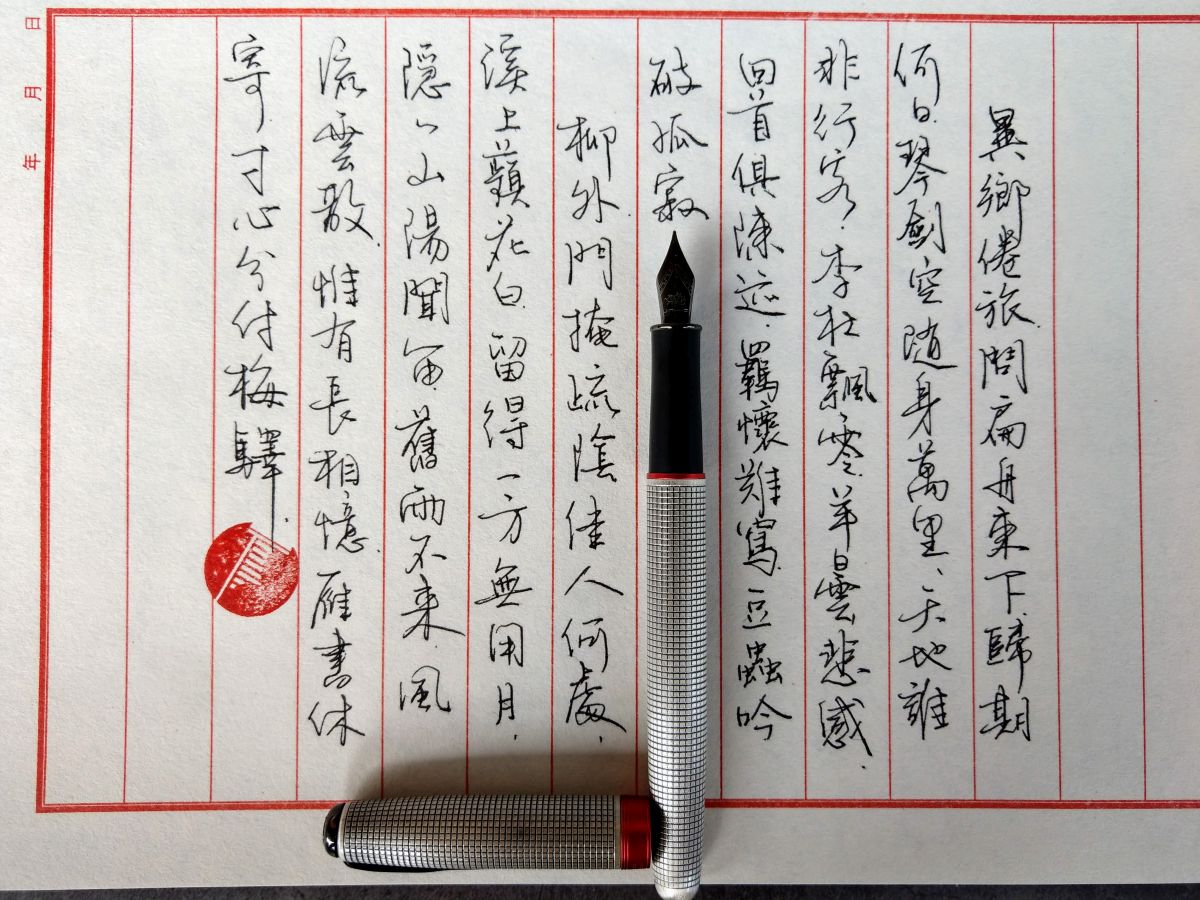 異鄉倦旅.問扁舟東下歸期
何日.琴劍空随身萬里、天地誰
非行客.李杜飄零.羊曇悲感.
回首俱陳迹.羈懷難寫.豆蟲吟
破孤寂
柳外門掩疏陰佳人何處、
溪上蘋花白.留得一方無用月.
隱〻山陽聞笛.舊雨不来風
流雲散.惟有長相憶.雁書休
寄寸心分付梅驛.
年月日